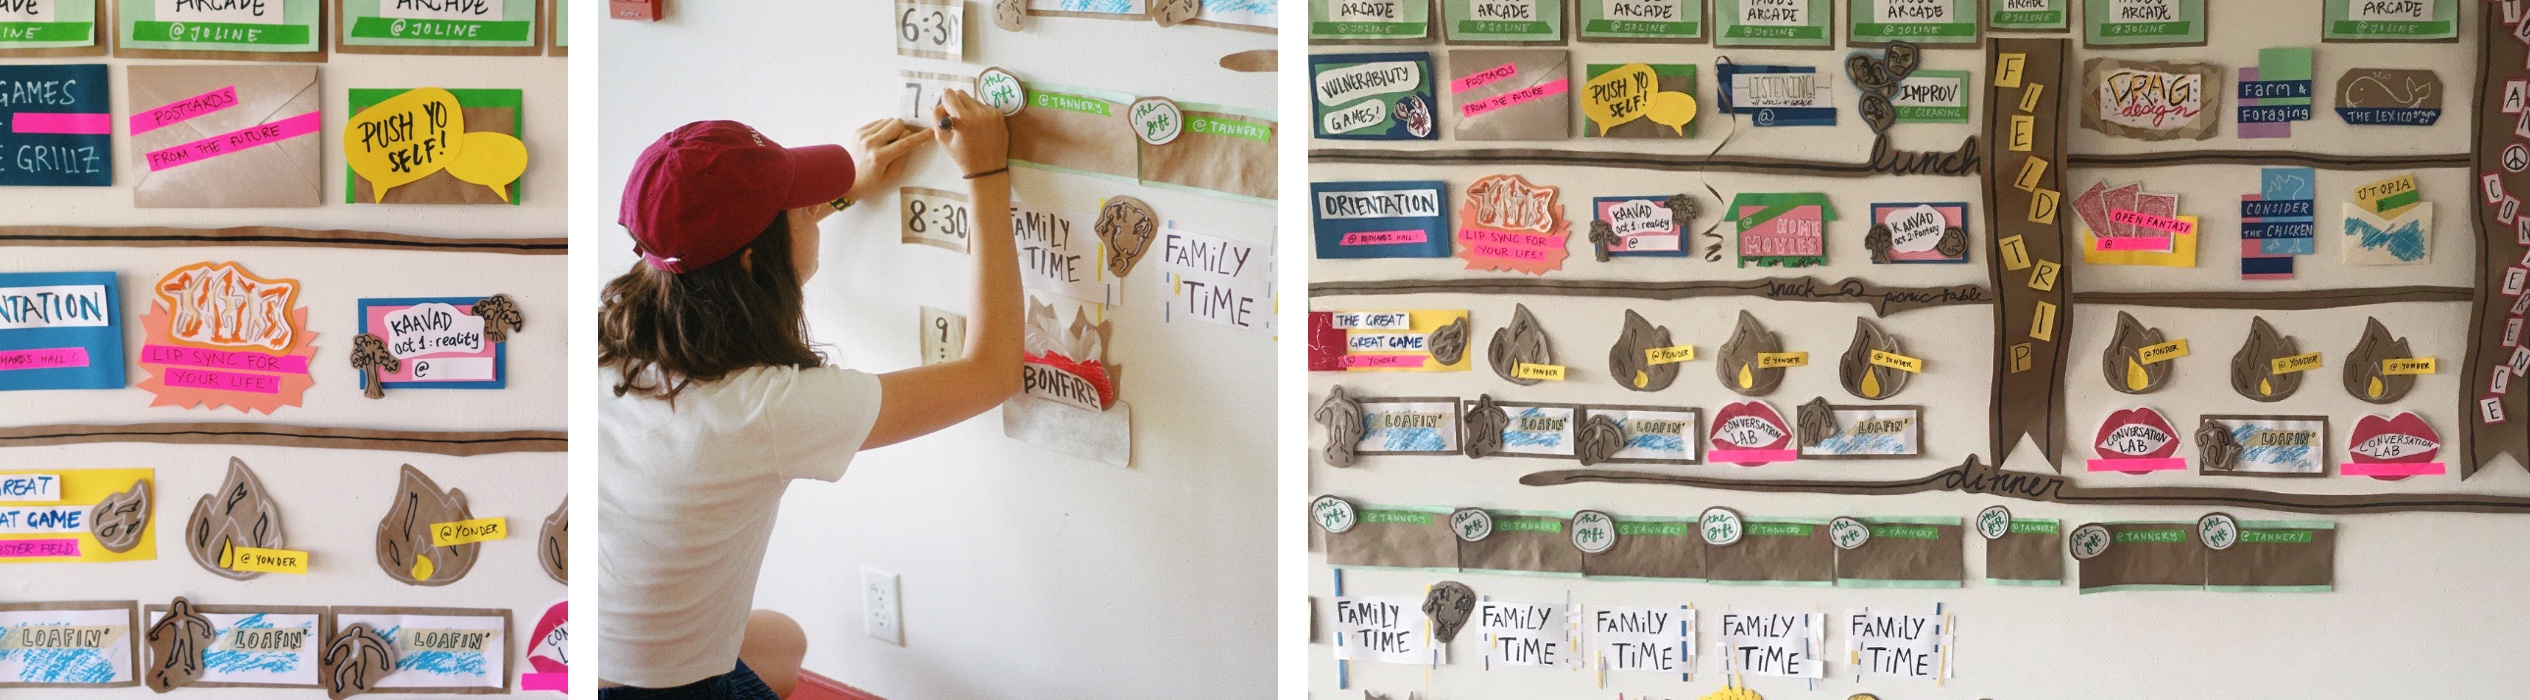 ARCADE
@ JOLINE
ARCADE
@ JOLINE
GAMES
GRILLZ
POSTCARDS
FROM THE FUTURE
PUSH YO
SELF!
LIP SYNC FOR
YOUR LIFE!
KAAVAD
act 1: reality
@
GAME
@ YONDER
@ YONDER
LOAFIN'
LOAFIN'
LOAFIN'
6:30
7
8:30
9
the
gift
@ TANNERY
the
gift
@ TANNERY
FAMILY
TIME
FAMILY
TIME
BONFIRE
ARCADE
@ JOLINE
ARCADE
@ JOLINE
ARCADE
@ JOLINE
ARCADE
@ JOLINE
ARCADE
@ JOLINE
ARCADE
@ JOLINE
ARCADE
@ JOLINE
ARCADE
@ JOLINE
VULNERABILITY
GAMES!
POSTCARDS
FROM THE FUTURE
PUSH YO
SELF!
LISTENING!
@
IMPROV
@ CLEARING
DRAG
design
Farm &
Foraging
THE LEXICOgrapher
lunch
ORIENTATION
@ RICHARDS HALL!
LIP SYNC FOR
YOUR LIFE!
KAAVAD
act 1: reality
@
@ HOME
MOVIES
KAAVAD
act 2: Fantasy
OPEN FANTASY
@
CONSIDER
THE CHICKEN
UTOPIA
@
snack @ picnic table
FIELD TRIP
THE GREAT
GREAT GAME
@ YONDER
@ YONDER
@ YONDER
@ YONDER
@ YONDER
@ YONDER
@ YONDER
@ YONDER
LOAFIN'
LOAFIN'
LOAFIN'
CONVERSATION
LAB
LOAFIN'
CONVERSATION
LAB
LOAFIN'
CONVERSATION
LAB
dinner
the
gift
@ TANNERY
the
gift
@ TANNERY
the
gift
@ TANNERY
the
gift
@ TANNERY
the
gift
@ TANNERY
the
gift
@ TANNERY
the
gift
@ TANNERY
the
gift
@ TANNERY
FAMILY
TIME
FAMILY
TIME
FAMILY
TIME
FAMILY
TIME
FAMILY
TIME
CONFERENCE